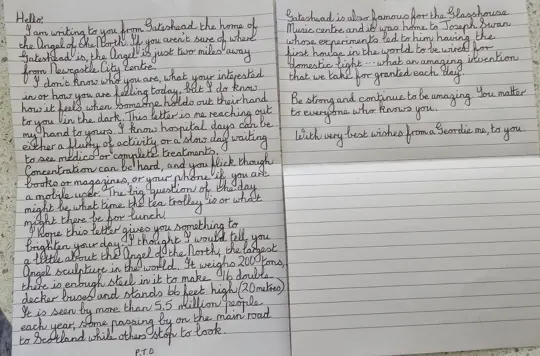 Hello,
I am writing to you from Gateshead the home of
the Angel of the North. If you aren't sure of where
Gateshead is, the Angel is just two miles away
from Newcastle City Centre.
I don't know who you are, what your interested
in or how you are feeling today, but I do know
how it feels when someone holds out their hand
to you in the dark. This letter is me reaching out
my hand to yours. I know hospital days can be
either a flurry of activity or a slow day waiting
to see medics or complete treatments.
Concentration can be hard, and you flick though
books or magazines, or your phone if you are
a mobile user. The big question of the day
might be what time the tea trolley is or what
might there be for lunch.
I hope this letter gives you something to
brighten your day. I thought I would tell you
a little about the Angel of the North, the largest
Angel sculpture in the world. It weighs 200 tons,
there is enough steel in it to make 16 double
decker buses and stands 66 feet high (20 metres)
It is seen by more than 5.5 million people
each year, some passing by on the main road
to Scotland while others stop to look.
P.T.O
Gateshead is also famous for the Glasshouse
Music centre and it was home to Joseph Swan
whose experiments led to him having the
first house in the world to be wired for
domestic light ... what an amazing invention
that we take for granted each day.
Be strong and continue to be amazing. You matter
to everyone who knows you.
With very best wishes from a Geordie me, to you